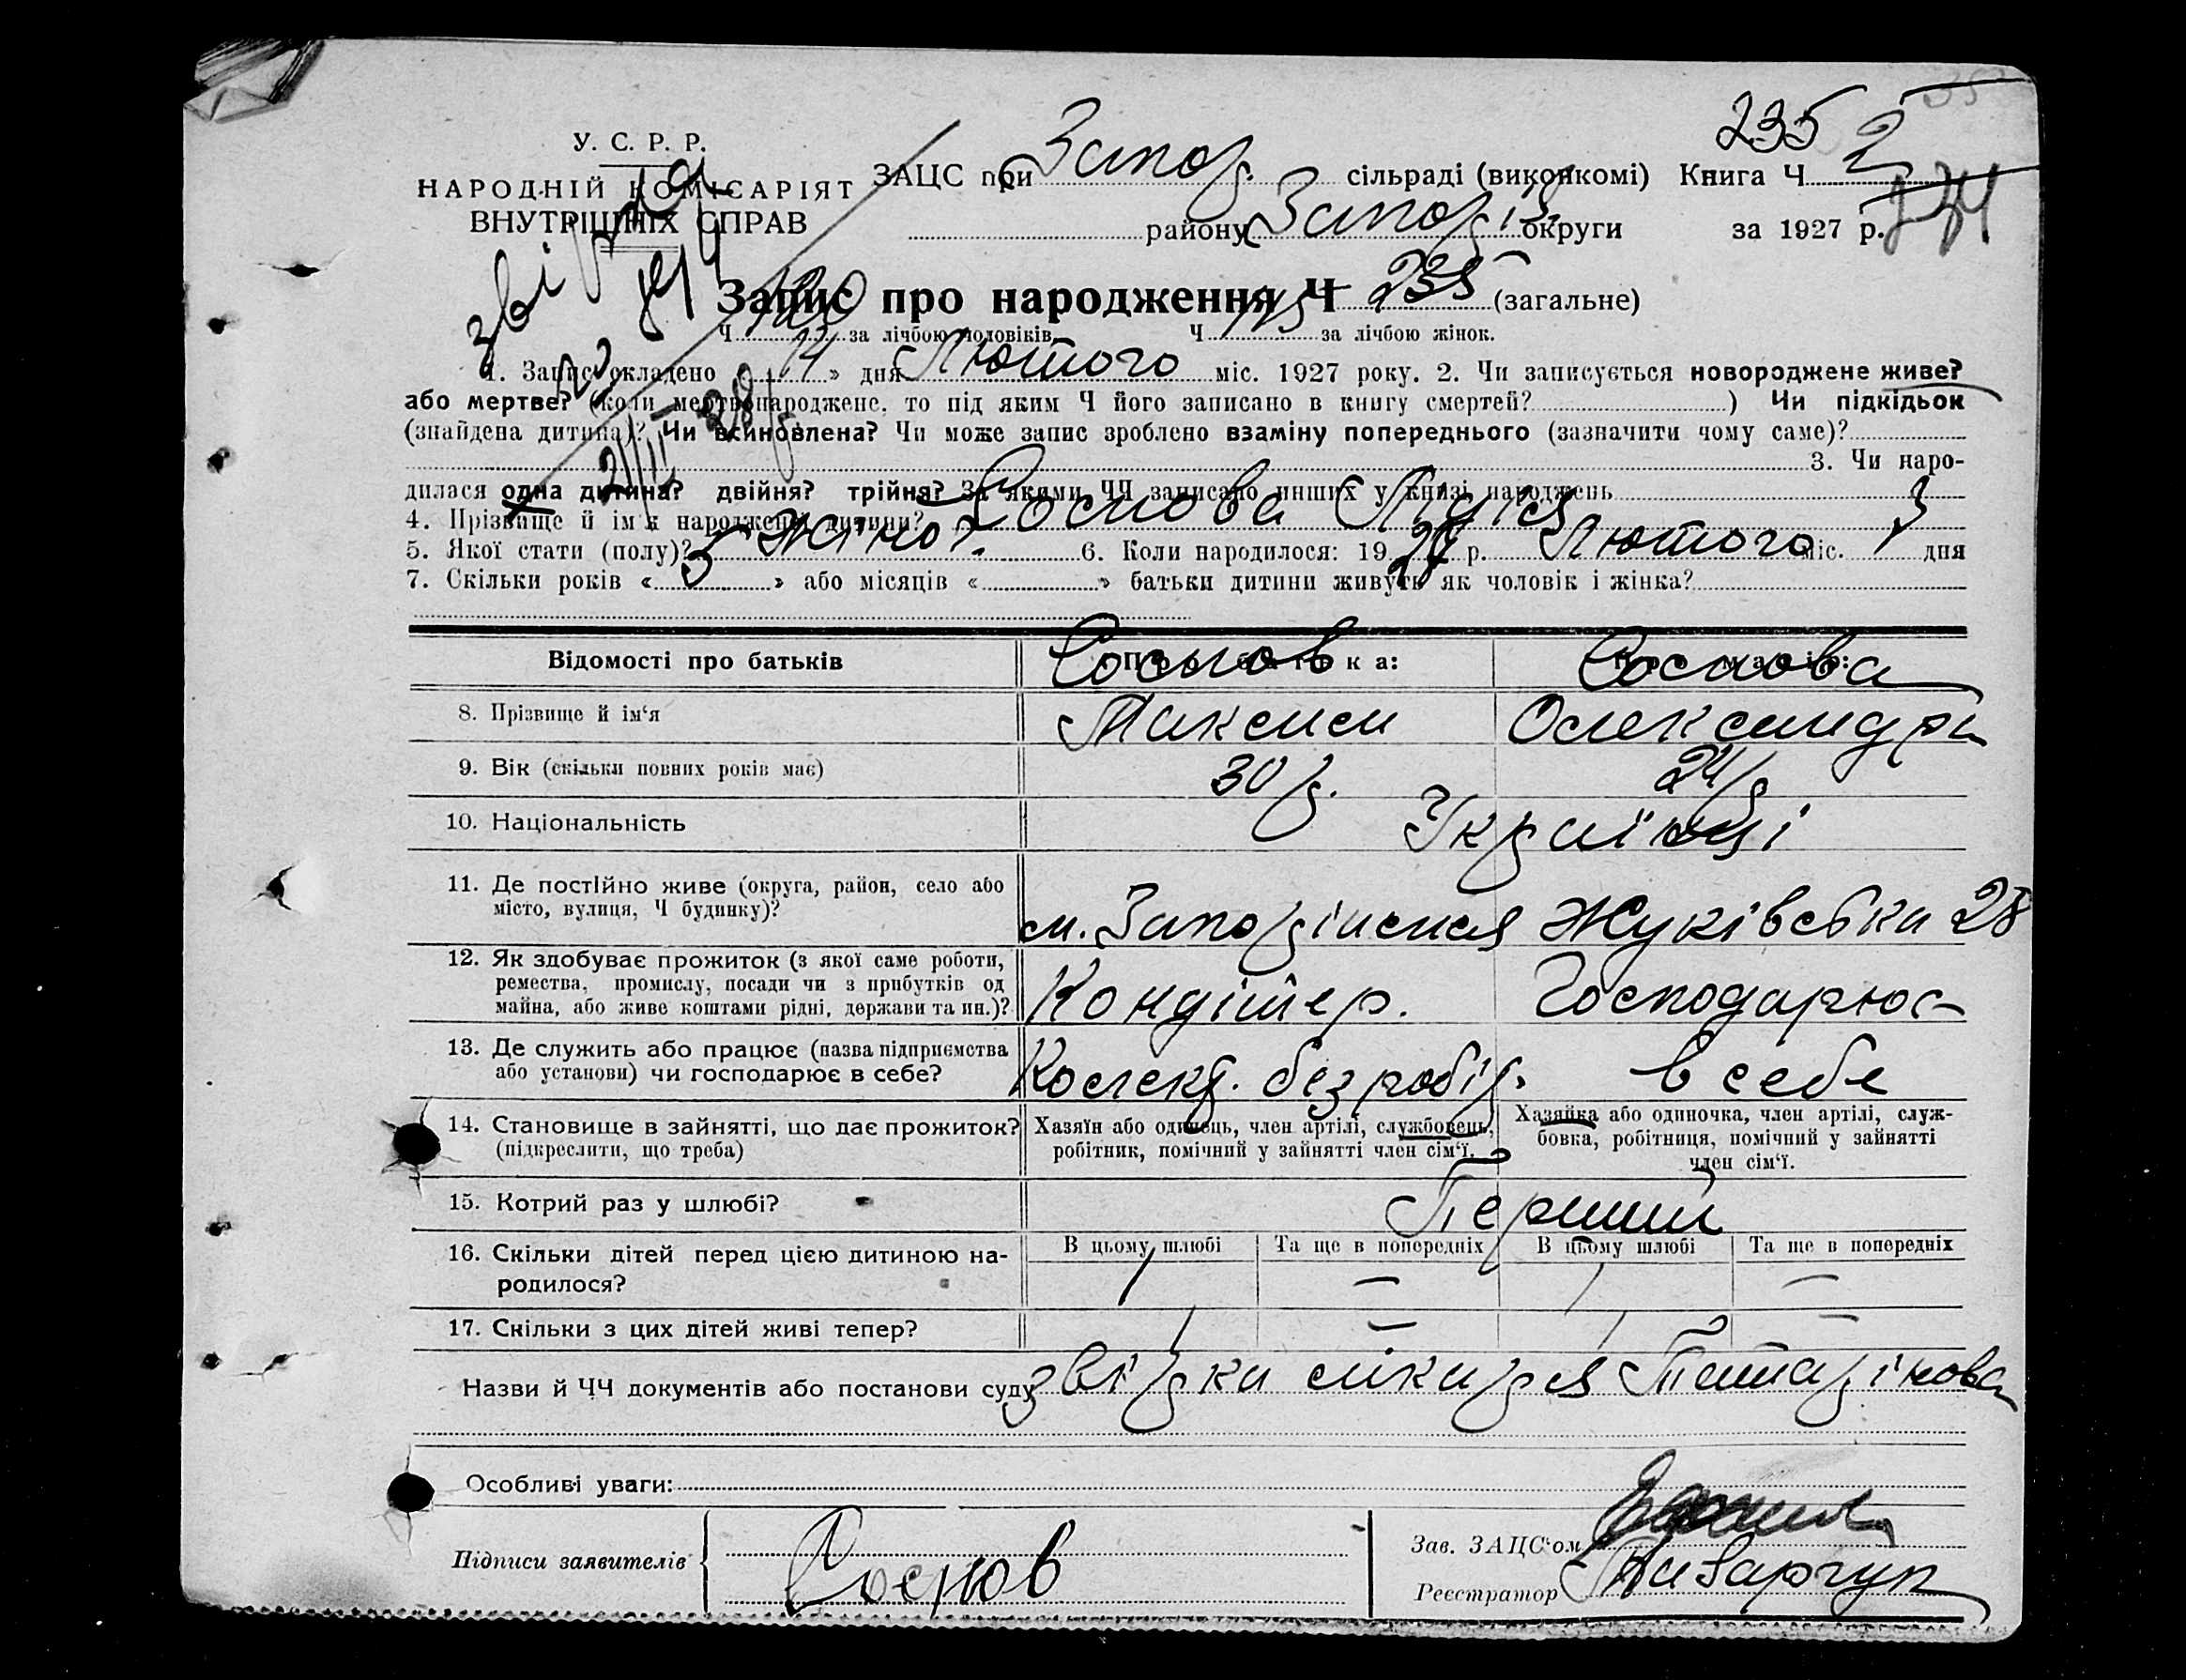 235 2
У. С. Р. Р.
НАРОДНІЙ КОМІСАРІЯТ
ВНУТРІШНІХ СПРАВ
ЗАЦС при Запор. сільраді (виконкомі) Книга Ч
району Запоріз. округи за 1927 р. 234
Запис про народження Ч 235 (загальне)
Ч 120 за лічбою чоловіків Ч 115 за лічбою жінок.
1. Запис складено « 14 » дня Лютого міс. 1927 року. 2. Чи записується новороджене живе?
або мертве? (коли мертвонароджене, то під яким Ч його записано в книгу смертей? ) Чи підкідьок
(знайдена дитина)? Чи всиновлена? Чи може запис зроблено взаміну попереднього (зазначити чому саме)?
3. Чи наро-
дилася одна дитина? двійня? трійня? За якими ЧЧ записано инших у книзі народжень
4. Прізвище й ім'я народженої дитини? Соснова Лідія
5. Якої стати (полу)? Жіноч. 6. Коли народилося: 1927 р. Лютого міс. 3 дня
7. Скільки років « 5 » або місяців « » батьки дитини живуть як чоловік і жінка?
Відомості про батьків Про батька: Про матір:
Соснов Соснова
8. Прізвище й ім'я Максим Олександра
9. Вік (скільки повних років має) 30 р. 24 р
10. Національність Українці
11. Де постійно живе (округа, район, село або
місто, вулиця, Ч будинку)? м. Запоріжжя Жуківська 28
12. Як здобуває прожиток (з якої саме роботи,
ремества, промислу, посади чи з прибутків од
майна, або живе коштами рідні, держави та ин.)? Кондітер. Господарює
13. Де служить або працює (назва підприємства
або установи) чи господарює в себе? Колект. безробіт. в себе
14. Становище в зайнятті, що дає прожиток?
(підкреслити, що треба)
Хазяїн або одинець, член артілі, службовець,
робітник, помічний у зайнятті член сім'ї.
Хазяйка або одиночка, член артілі, служ-
бовка, робітниця, помічний у зайнятті
член сім'ї.
15. Котрий раз у шлюбі? Перший
16. Скільки дітей перед цією дитиною на-
родилося?
В цьому шлюбі Та ще в попередніх В цьому шлюбі Та ще в попередніх
1 — 1 —
17. Скільки з цих дітей живі тепер? 1 — 1 —
Назви й ЧЧ документів або постанови суду звідка лікаря Татарінова
Особливі уваги:
Підписи заявителів Соснов
Зав. ЗАЦС'ом
Реєстратор